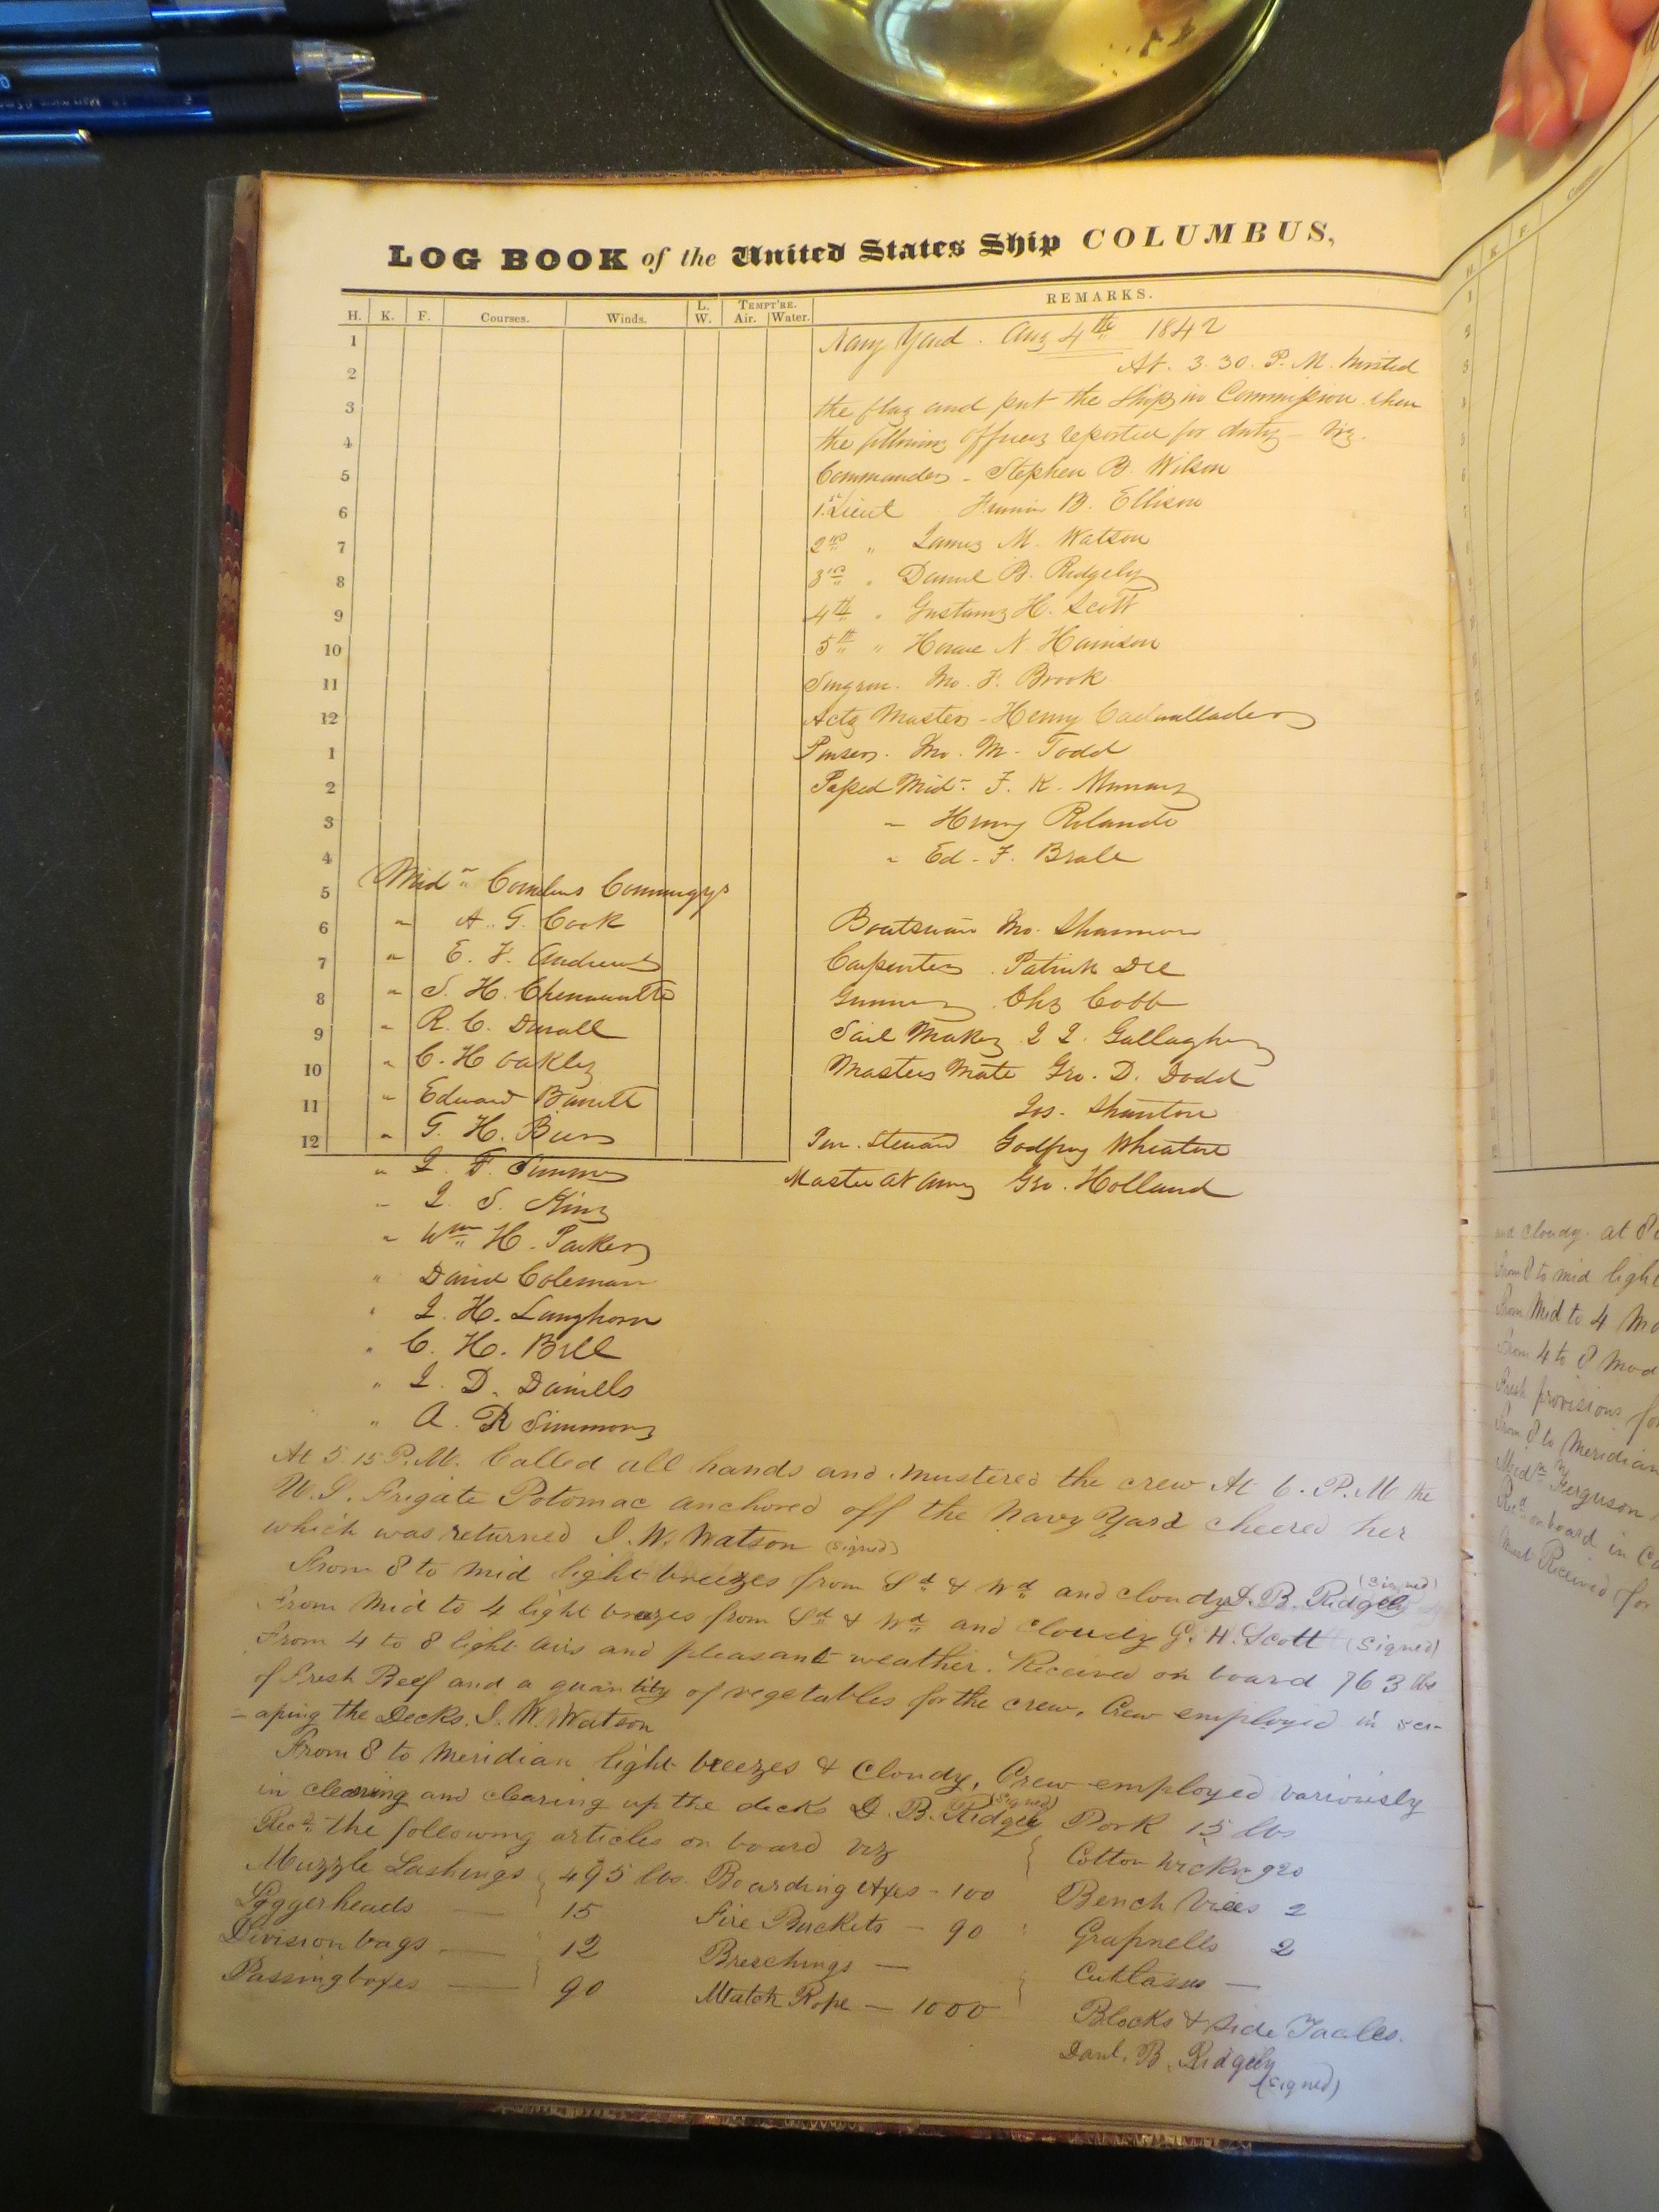 LOG BOOK of the United States Ship COLUMBUS,
H. K. F. Courses. Winds. L. W. TEMPT'RE. Air. Water. REMARKS.
1
2
3
4
5
6
7
8
9
10
11
12
1
2
3
4
5
6
7
8
9
10
11
12
Navy Yard. Aug 4th 1842
At. 3.30. P.M. hoisted
the flag and put the Ship in Commission when
the following officers reported for duty - viz.
Commander - Stephen B. Wilson
1st Lieut B. Ellison
2nd " James M. Watson
3rd " Daniel B. Ridgely
4th " Gustavus H. Scott
5th " Horace N. Harrison
Surgeon. Jno. F. Brook
Actg Master - Henry Cadwallader
Purser. Jno. M. Todd
Passed Mid. F. K. Murray
" Henry Rolando
" Ed. F. Beale
Mid. Cornelius Comegys
" A. G. Cook
" E. F. Andrews
" S. H. Chenowith
" R. C. Duvall
" C. H. Oakley
" Edward Barrett
" G. H. Bier
" J. F. Simmes
" J. S. King
" Wm H. Parker
" David Coleman
" J. H. Langhorn
" C. H. Bell
" J. D. Daniells
" A. R Simmons
Boatswain Jno. Shannon
Carpenter. Patrick Dee
Gunner. Chs Cobb
Sail Maker J J. Gallagher
Masters Mate Geo. D. Dodd
Jos. Stanton
Steward Godfrey Wheatore
Master at Arms Geo. Holland
At 5.15 P.M. Called all hands and mustered the crew At 6. P.M the
U.S. Frigate Potomac anchored off the Navy Yard cheered her
which was returned J. W. Watson (signed)
From 8 to mid light breezes from Sd & Wd and cloudy D. B. Ridgely (signed)
From Mid to 4 light breezes from Sd & Wd and Cloudy G. H. Scott (signed)
From 4 to 8 light airs and pleasant weather. Received on board 763 lbs
of Fresh Beef and a quantity of vegetables for the crew. Crew employed in scr-
-aping the Decks. J. W. Watson
From 8 to meridian light breezes & Cloudy, Crew employed variously
in clearing and clearing up the decks D. B. Ridgely (signed)
Recd. the following articles on board viz
Muzzle Lashings 495 lbs.
Loggerheads 15
Division bags 12
Passing boxes 90
Boarding Axes - 100
Fire Buckets - 90
Breechings -
Match Rope - 1000
Pork 15 lbs
Cotton
Bench Vices 2
Grapnells 2
Cutlasses -
Blocks & Side Tackles.
Danl. B. Ridgely
(signed)
H K. F. Courses
and cloudy. at 8
From 8 to mid light
From Mid to 4 Mo
From 4 to 8 Mod
Fresh provisions for
From 8 to Meridian
Midn Ferguson
Recd onboard in
Received for